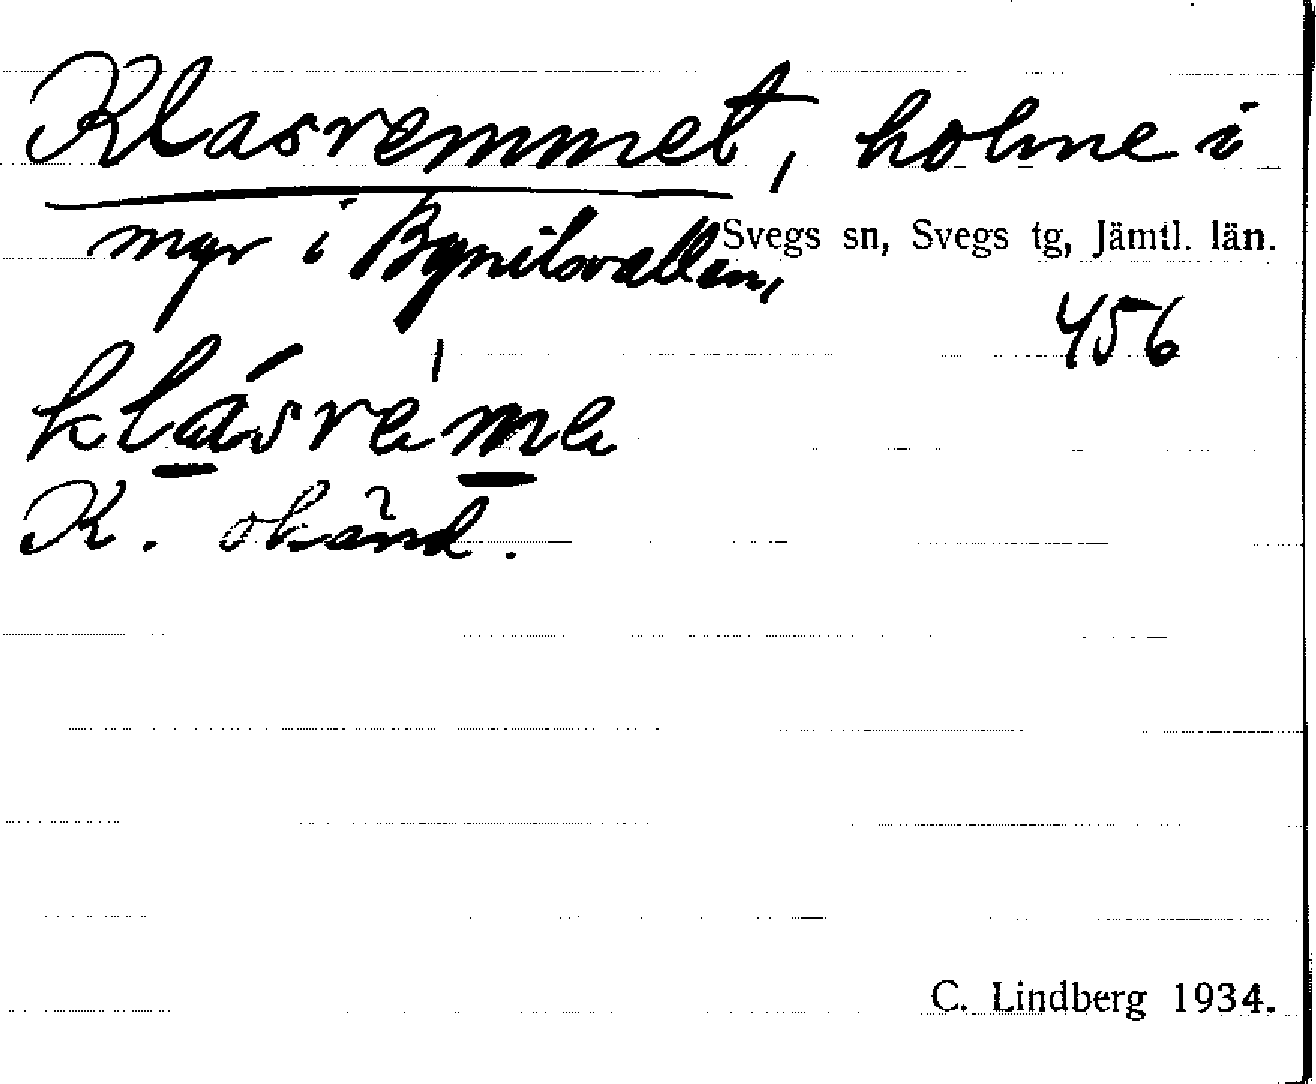 Klasremmet, holme i
myr i Bynilsvallen,
Svegs sn, Svegs tg, Jämtl. län.
456
klásrèma
K. okänd.
C. Lindberg 1934.